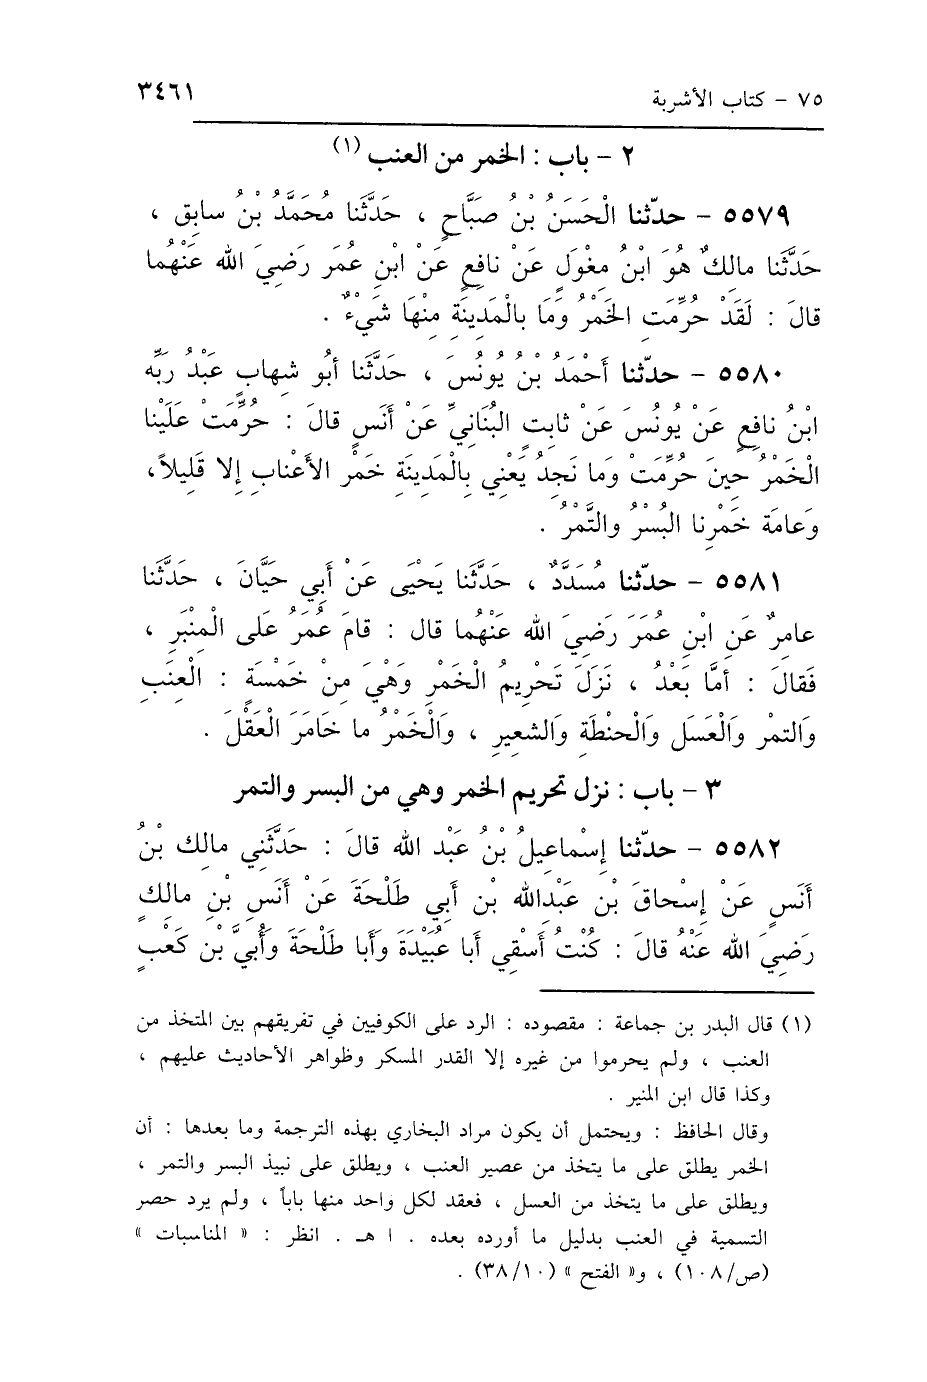 ٧٥ - كتاب الأشربة ٣٤٦١
٢ - باب : الخمر من العنب (١)
٥٥٧٩ - حدّثنا الْحَسَنُ بْنُ صَبَّاحٍ ، حَدَّثَنا مُحَمَّدُ بْنُ سابِق ،
حَدَّثَنا مالِكٌ هُوَ ابْنُ مِغْوَلٍ عَنْ نافِعٍ عَنْ ابْنِ عُمَر رَضِيَ الله عَنْهُما
قالَ : لَقَدْ حُرِّمَتِ الخَمْرُ وَمَا بِالْمَدِينَةِ مِنْهَا شَيْءٌ .
٥٥٨٠ - حدّثنا أَحْمَدُ بْنُ يُونُسَ ، حَدَّثَنا أبُو شِهابٍ عَبْدُ رَبِّه
ابْنُ نافِعٍ عَنْ يُونُسَ عَنْ ثابِتٍ البُنَانِيِّ عَنْ أَنَسٍ قالَ : حُرِّمَتْ عَلَيْنا
الْخَمْرُ حِينَ حُرِّمَتْ وَما نَجِدُ يَعْنِي بِالْمَدِينَةِ خَمْر الأَعْنابِ إِلا قَلِيلاً،
وَعامَة خَمْرِنا البُسْرُ والتَّمْرُ .
٥٥٨١ - حدّثنا مُسَدَّدٌ ، حَدَّثَنا يَحْيَى عَنْ أَبِي حَيَّانَ ، حَدَّثَنا
عامِرٌ عَنِ ابْنِ عُمَرَ رَضِيَ الله عَنْهُما قال : قامَ عُمَرُ عَلى الْمِنْبَرِ ،
فَقالَ : أمَّا بَعْدُ ، نَزَلَ تَحْرِيمُ الْخَمْرِ وَهْيَ مِنْ خَمْسَةٍ : الْعِنَبِ
وَالتمْرِ وَالْعَسَلِ وَالْحِنْطَةِ وَالشعِيرِ ، وَالْخَمْرُ ما خَامَرَ الْعَقْلَ .
٣ - باب : نزل تحريم الخمر وهي من البسر والتمر
٥٥٨٢ - حدّثنا إسْماعِيلُ بْنُ عَبْدِ الله قالَ : حَدَّثَنِي مالِك بْنُ
أَنَسٍ عَنْ إِسْحاقَ بْنِ عَبْدِالله بْنِ أَبِي طَلْحَةَ عَنْ أَنَسِ بْنِ مالِكٍ
رَضِيَ الله عَنْهُ قالَ : كُنْتُ أَسْقِي أَبا عُبَيْدَةَ وَأَبا طَلْحَةَ وَأُبَيَّ بْن كَعْبٍ
(١) قال البدر بن جماعة : مقصوده : الرد على الكوفيين في تفريقهم بين المتخذ من
العنب ، ولم يحرموا من غيره إلا القدر المسكر وظواهر الأحاديث عليهم ،
وكذا قال ابن المنير .
وقال الحافظ : ويحتمل أن يكون مراد البخاري بهذه الترجمة وما بعدها : أن
الخمر يطلق على ما يتخذ من عصير العنب ، ويطلق على نبيذ البسر والتمر ،
ويطلق على ما يتخذ من العسل ، فعقد لكل واحد منها باباً ، ولم يرد حصر
التسمية في العنب بدليل ما أورده بعده . ا هـ . انظر : « المناسبات »
(ص/١٠٨) ، و« الفتح » (٣٨/١٠) .